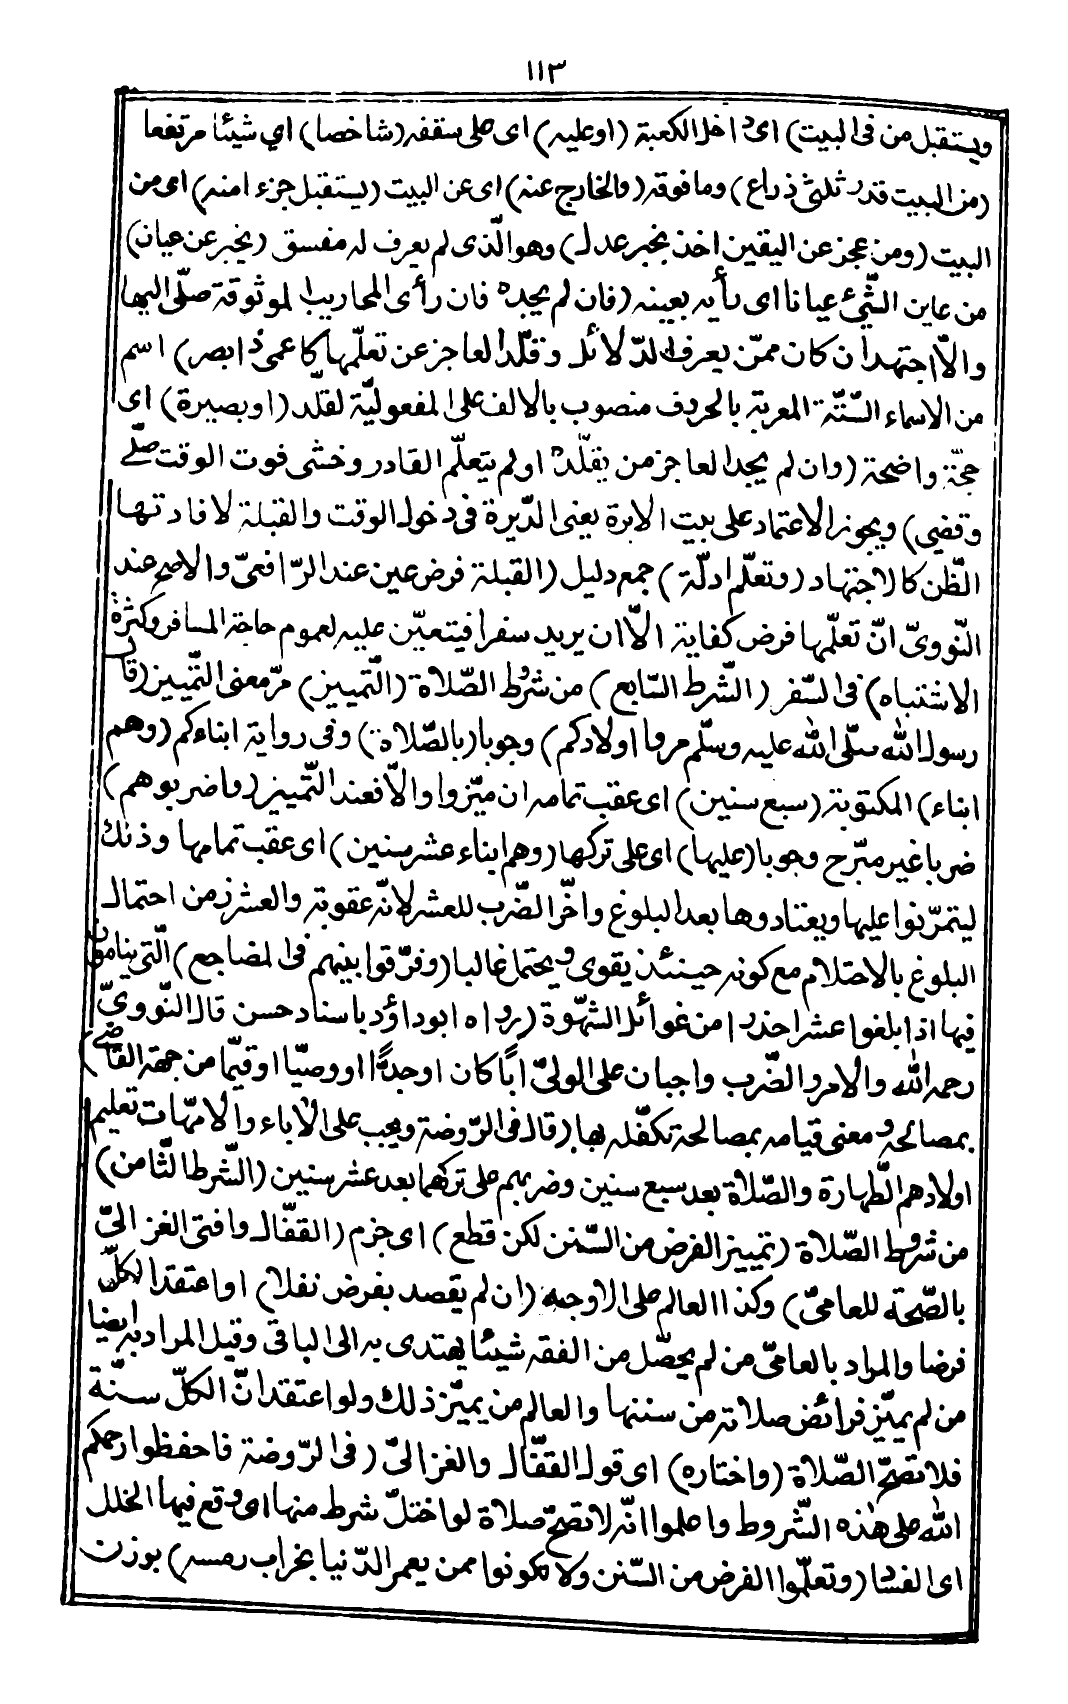 ١١٣
ويستقبل من فى البيت) اى داخل الكعبة (او عليه) اى على سقفه (شاخصا) اي شيئا مرتفعا
(من البيت قدر ثلثى ذراع) وما فوقه (والخارج عنه) اى عن البيت (يستقبل جزء امنه) اى من
البيت (ومن عجز عن اليقين اخذ بخبر عدل) وهو الّذى لم يعرف له مفسق (يخبر عن عيان)
من عاين الشّيئ عيانا اى رأيه بعينه (فان لم يجده فان رأى المحاريب الموثوقة صلّى اليها
والاّ اجتهد ان كان ممّن يعرف الدّلائل وقلّد العاجز عن تعلّمها كاعمى ذا بصر) اسم
من الاسماء السّتّة المعربة بالحروف منصوب بالالف على المفعوليّة لقلّد (او بصيرة) اى
حجّة واضحة (وان لم يجد العاجز من يقلّده او لم يتعلّم القادر وخشى فوت الوقت صلّى
وقضي) ويجوز الاعتماد على بيت الابرة يعنى الدّيرة فى دخول الوقت والقبلة لافادتها
الظّن كالاجتهاد (وتعلّم ادلّة) جمع دليل (القبلة فرض عين عند الرّافعىّ والاصح عند
النّووىّ انّ تعلّمها فرض كفاية الاّ ان يريد سفرا فيتعيّن عليه لعموم حاجة المسافر وكثرة
الاشتباه) فى السّفر (الشّرط السّابع) من شروط الصّلاة (التّمييز) مرّ معنى التّمييز (قال
رسول الله صلّى الله عليه وسلّم مروا اولادكم) وجوبا (بالصّلاة) وفى رواية ابناءكم (وهم
ابناء) المكتوبة (سبع سنين) اى عقب تمامه ان ميّزوا والاّ فعند التّمييز (واضربوهم)
ضربا غير مبّرح وجوبا (عليها) اى على تركها (وهم ابناء عشر سنين) اى عقب تمامها وذلك
ليتمرّنوا عليها ويعتادوها بعد البلوغ واخّر الضّرب للعشر لانّه عقوبة والعشر زمن احتمال
البلوغ بالاحتلام مع كونه حينئذ يقوى ويحتمل غالبا (وفرّقوا بينهم فى المضاجع) الّتى ينامون
فيها اذا بلغوا عشرا حذرا من غوائل الشهّوة (رواه ابو داؤد باسناد حسن قال النّووىّ
رحمه الله والامر والضّرب واجبان على الولىّ ابًا كان او جدًّا او وصيّا او قيّما من جهة القاضى)
بمصالحه ومعنى قيامه بمصالحة تكفّله بها (قال فى الرّوضة ويجب على الأباء والامّهات تعليم
اولادهم الطّهارة والصّلاة بعد سبع سنين وضربهم على تركهما بعد عشر سنين (الشّرط الثّامن)
من شروط الصّلاة (تمييز الفرض من السّنن لكن قطع) اى جزم (القفّال وافتى الغزالىّ
بالصّحة للعامىّ) وكذا العالم على الاوجه (ان لم يقصد بفرض نفلا) او اعتقد الكلّ
فرضا والمراد بالعامىّ من لم يحصّل من الفقه شيئا يهتدى به الى الباقى وقيل المراد به ايضا
من لم يميّز فرائض صلاته من سننها والعالم من يميّز ذلك ولو اعتقد انّ الكلّ سنّة
فلا تصحّ الصّلاة (واختاره) اى قول القفّال والغزالىّ (فى الرّوضة فاحفظوا رحمكم
الله على هذه الشّروط واعلموا انّه لا تصحّ صلاة لو اختلّ شرط منها اى وقع فيها الخلل
اى الفساد (وتعلّموا الفرض من السّنن ولا تكونوا ممن يعمر الدّنيا بخراب رمسه) بوزن